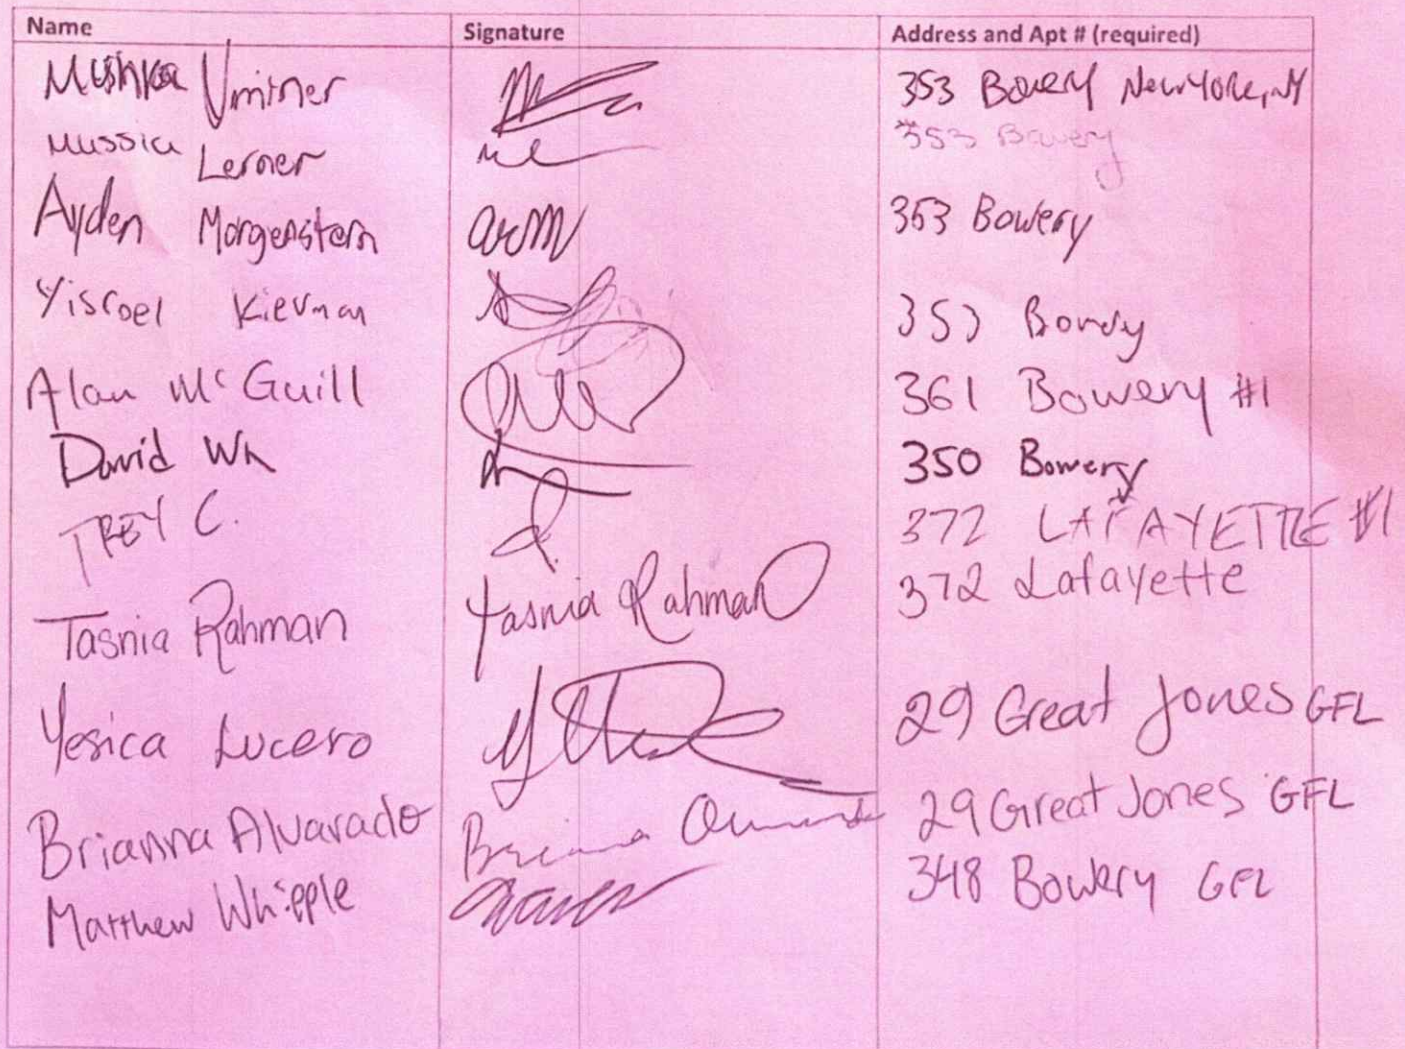 Name Signature Address and Apt # (required)
Mushka Vminer 353 Bowery New York, NY
Mussia Lerner 353 Bowery
Ayden Morgenstern arm 353 Bowery
Yisroel Kievman 353 Bowery
Alan McGuill 361 Bowery #1
David Wh 350 Bowery
TREY C. 372 LAFAYETTE #1
Tasnia Rahman Tasnia Rahman 372 Lafayette
Yesica Lucero 29 Great Jones GFL
Brianna Alvarado Briana 29 Great Jones GFL
Matthew Whipple 348 Bowery GFL